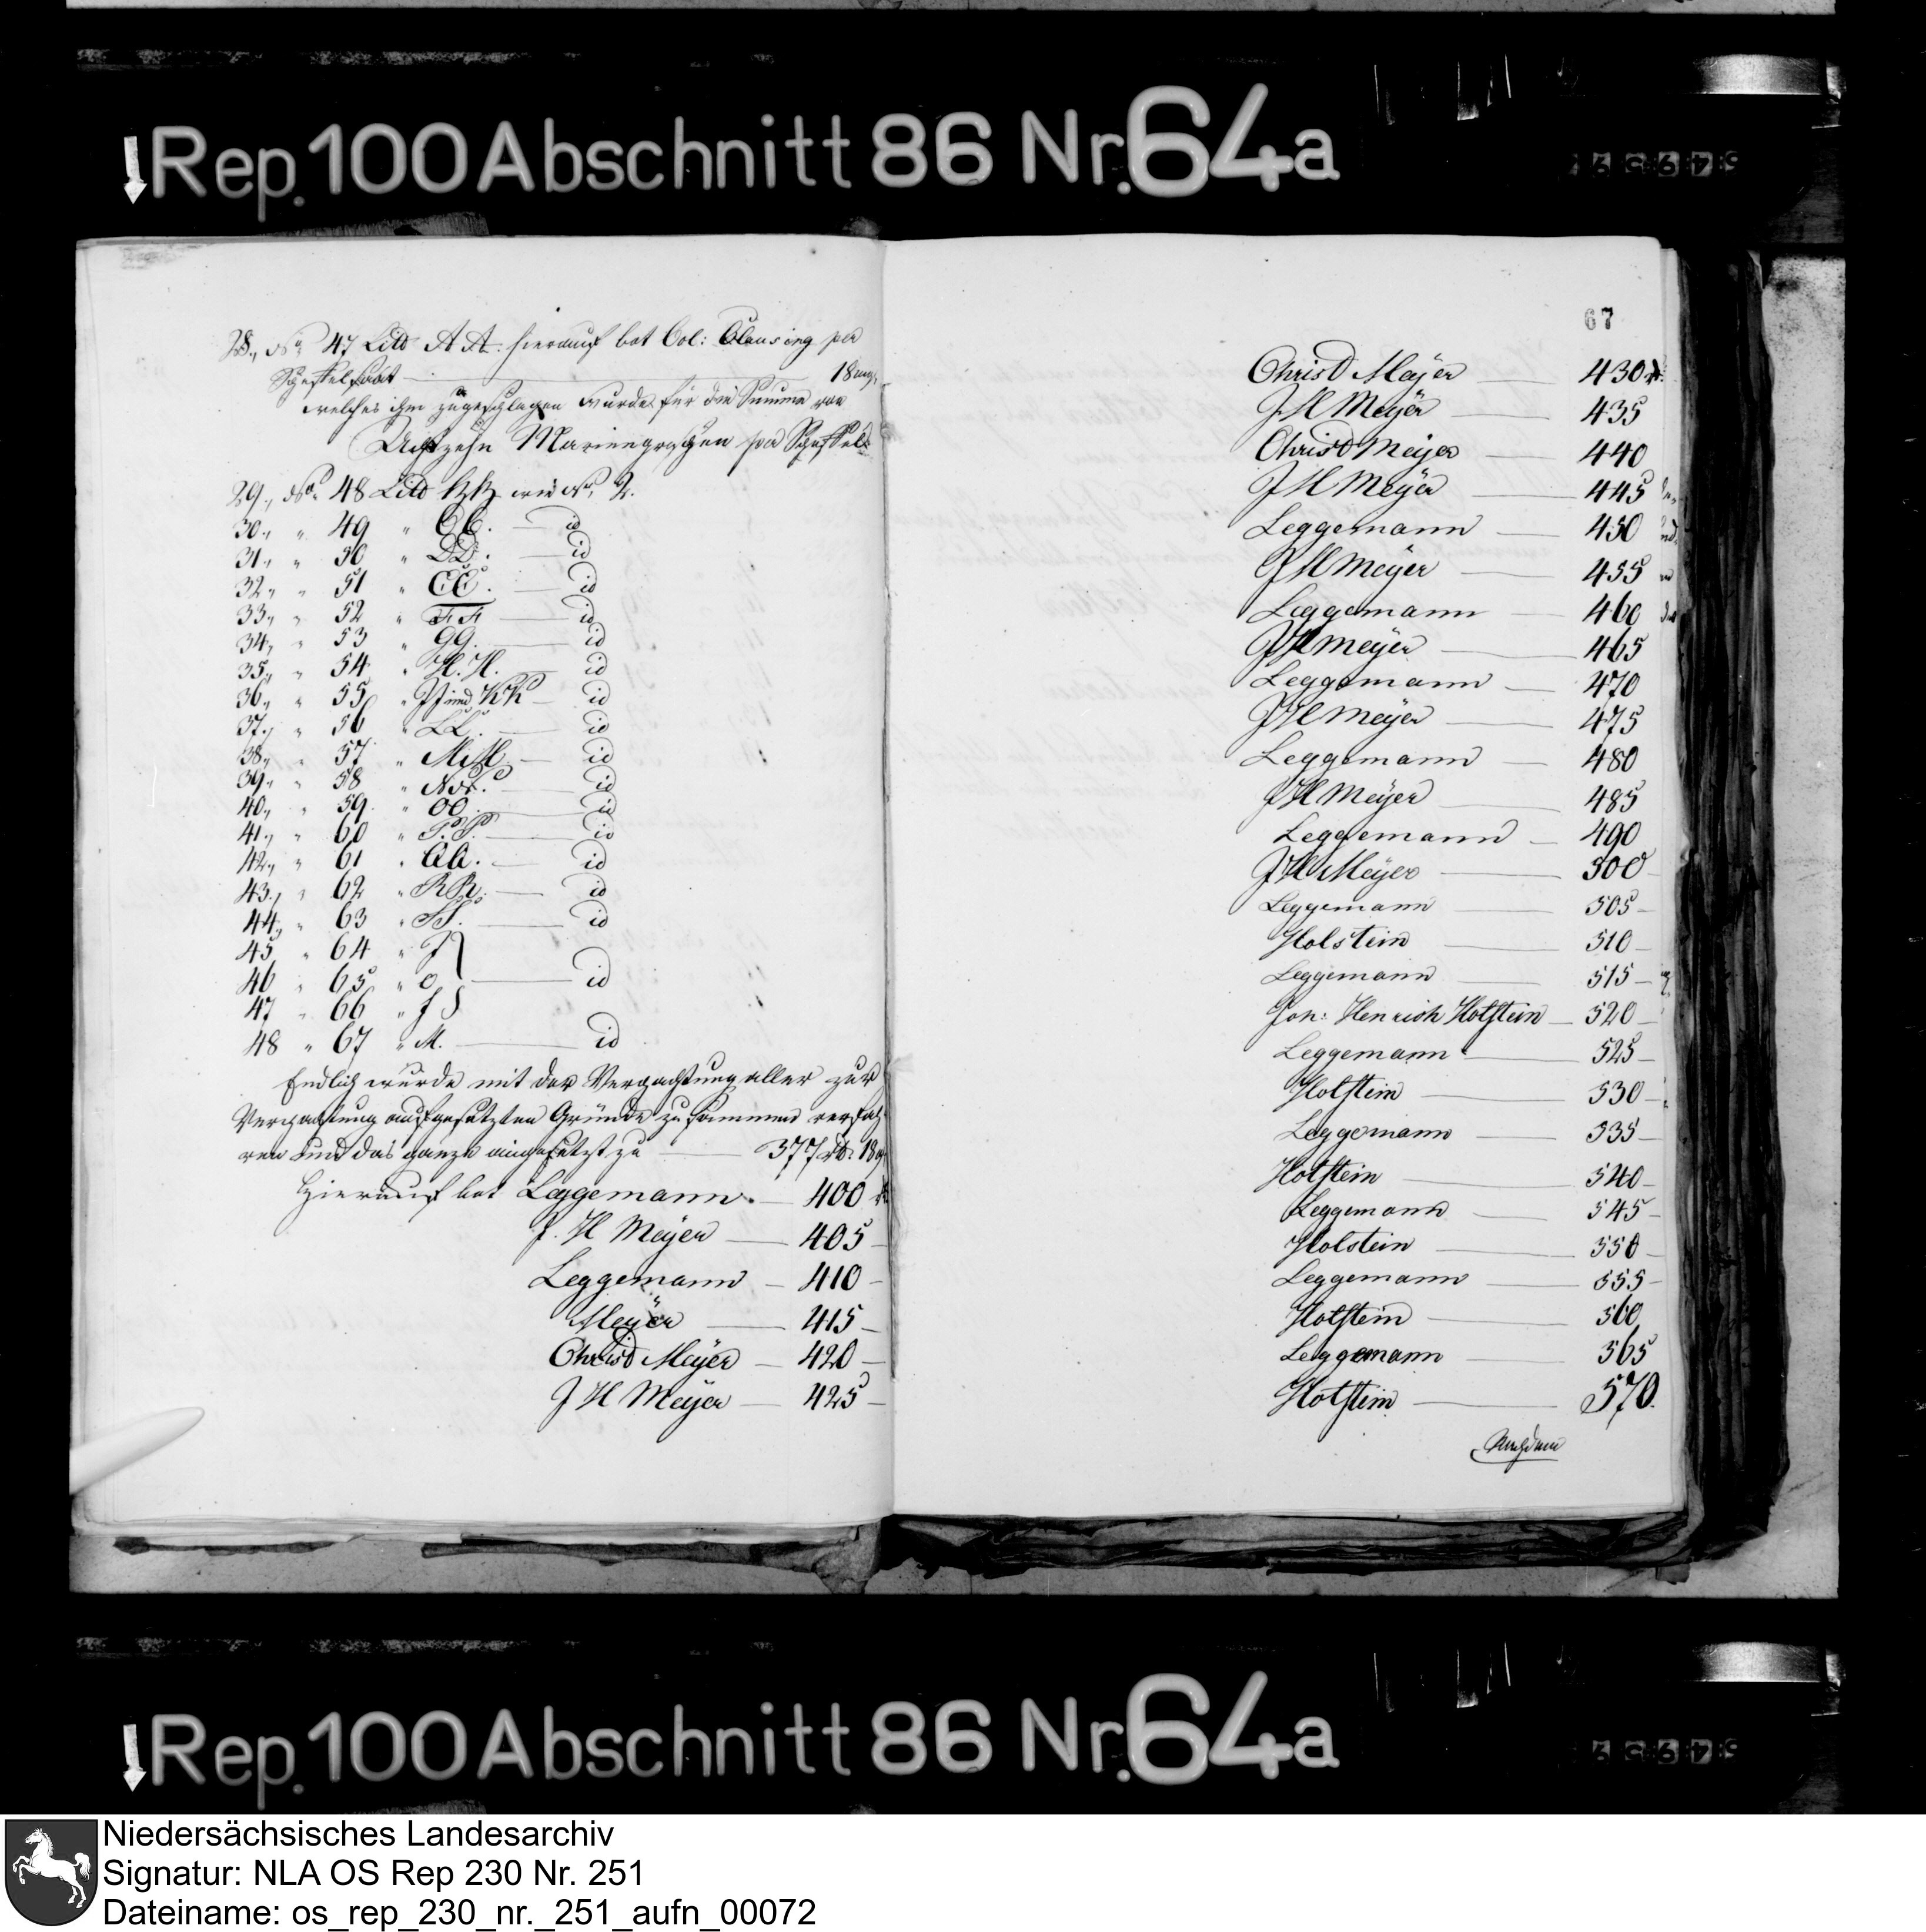 Rep. 100 Abschnitt 86 Nr. 64a
28., No 47 Litt AA. hierauf bot Col: Clausing per
Scheffelsaat — 18 mgr,
welches ihm zugeschlagen wurde für die Summe von
Achtzehn Mariengroschen per Scheffels.
29., No 48 Litt BB wie No, 2.
30., " 49 " CC. — id
31., " 50 " DD. — id
32., " 51 " EE. — id
33., " 52 " FF — id
34., " 53 " GG. — id
35., " 54 " H.H. — id
36., " 55 " JJ und KK — id
37., " 56 " LL. — id
38., " 57 " MM. — id
39., " 58 " NN. — id
40., " 59. " OO. — id
41., " 60 " P.P. — id
42., " 61 " QQ. — id
43., " 62 " RR. — id
44., " 63 " SS. — id
45 " 64 "
46 " 65 " — id
47 " 66 "
48 " 67 " M. — id
Endlich wurde mit der Verpachtung aller zur
Verpachtung ausgesetzten Gründe zusammen verfah
ren und das ganze eingesetzt zu — 377 rt. 18
Hierauf bot Leggemann. — 400 rt
J. H Meyer — 405 —
Leggemann — 410 —
Meyer — 415 —
Christ Meyer — 420 —
J H Meyer — 425 —
67
Christ Meyer — 430 rt.
J H Meyer — 435
Christ Meyer — 440
J H Meyer — 445
Leggemann — 450
J H Meyer — 455
Leggemann — 460
J H Meyer — 465
Leggemann — 470
J H Meyer — 475
Leggemann — 480
J H Meyer — 485
Leggemann — 490
J H Meyer — 500
Leggemann — 505 —
Holstein — 510 —
Leggemann — 515 —
Joh: Henrich Holstein — 520 —
Leggemann — 525 —
Holstein — 530 —
Leggemann — 535 —
Holstein — 540 —
Leggemann — 545 —
Holstein — 550 —
Leggemann — 555 —
Holstein — 560
Leggemann — 565
Holstein — 570.
Nachdem
Rep. 100 Abschnitt 86 Nr. 64a
Niedersächsisches Landesarchiv
Signatur: NLA OS Rep 230 Nr. 251
Dateiname: os_rep_230_nr._251_aufn_00072